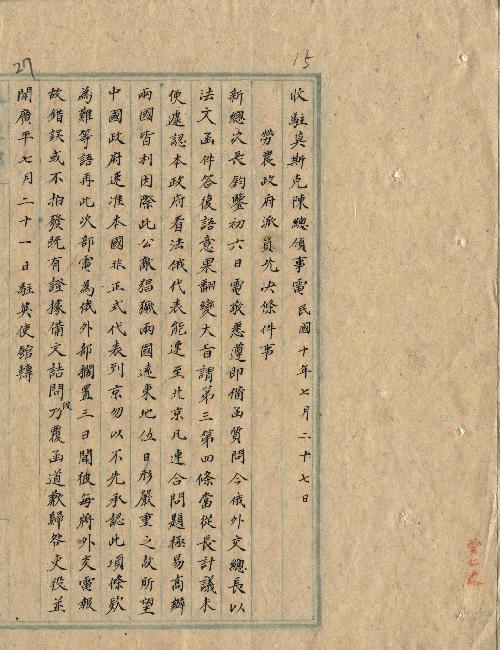 15
27
收駐莫斯克陳總領事電民國十年七月二十七日
勞農政府派員先決條件事
新總次長鈞鑒初六日電敬悉遵即備函質問今俄外交總長以
法文函件答復語意果翻變大旨謂第三第四條當從長計議未
便遽認本政府看法俄代表能速至北京凡連合問題極易商辦
兩國皆利因際此公敵猖獗兩國遠東地位日形嚴重之故所望
中國政府速准本國非正式代表到京勿以不先承認此項條欵
為難等語再此次部電為俄外部擱置三日聞彼每將外交電報
故錯誤或不拍發既有證據備文詰問彼乃覆函道歉歸咎吏役並
聞廣平七月二十一日駐英使館轉